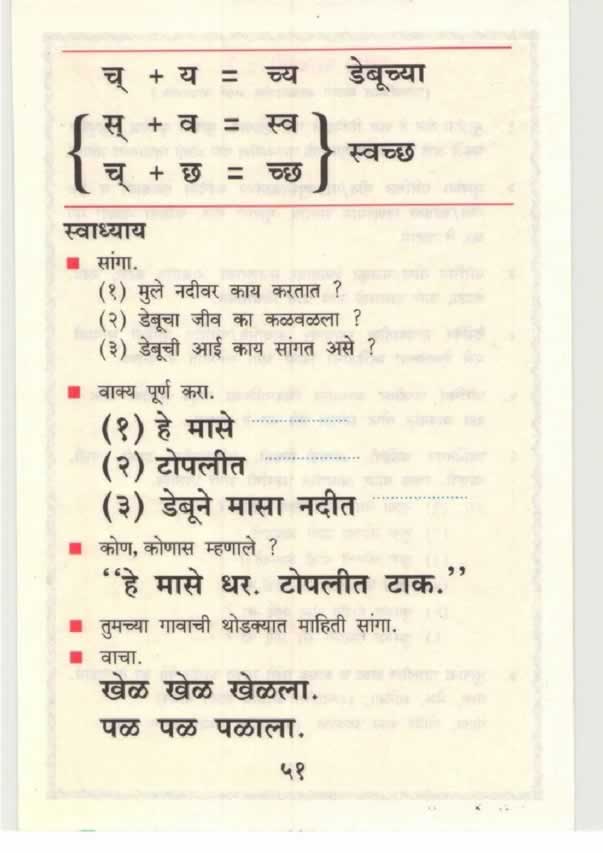 च् + य = च्य डेबूच्या
स् + व = स्व
च् + छ = च्छ
स्वच्छ
स्वाध्याय
सांगा.
(१) मुले नदीवर काय करतात ?
(२) डेबूचा जीव का कळवळला ?
(३) डेबूची आई काय सांगत असे ?
वाक्य पूर्ण करा.
(१) हे मासे ..........
(२) टोपलीत ..........
(३) डेबूने मासा नदीत ..........
कोण, कोणास म्हणाले ?
“हे मासे धर. टोपलीत टाक.”
तुमच्या गावाची थोडक्यात माहिती सांगा.
वाचा.
खेळ खेळ खेळला.
पळ पळ पळाला.
५१